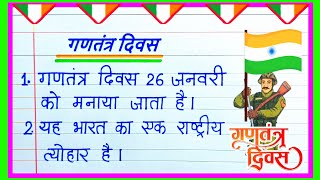 गणतंत्र दिवस
1. गणतंत्र दिवस 26 जनवरी
को मनाया जाता है।
2 यह भारत का एक राष्ट्रीय
त्योहार है।
गणतंत्र
दिवस